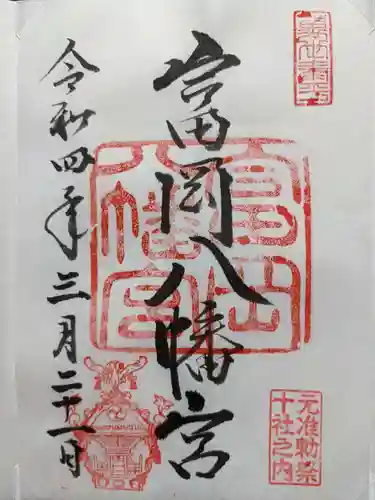 富岡八幡宮
令和四年三月二十一日
富岡八幡宮
元准勅祭
十社之内